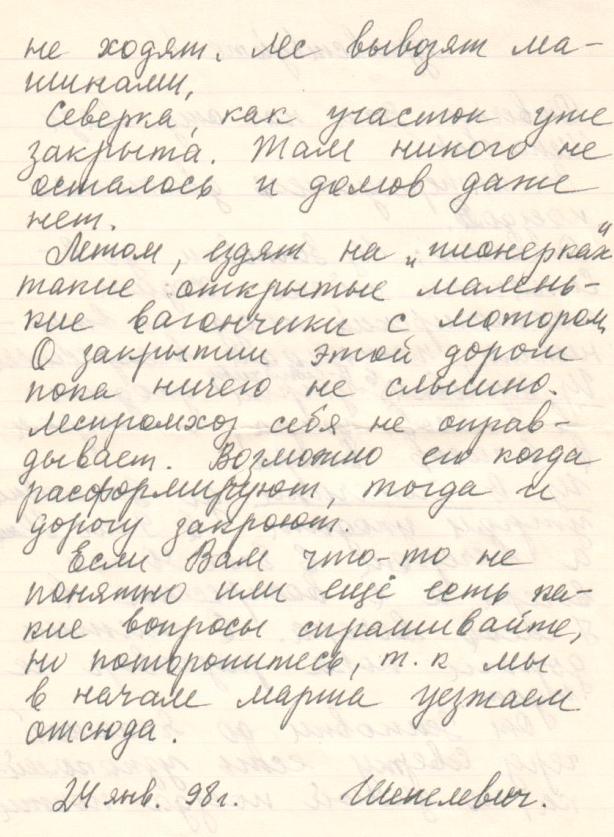 не ходят. Лес вывозят ма-
шинами,
Северка, как участок уже
закрыта. Там никого не
осталось и домов даже
нет.
Летом, ездят на „пионерках"
такие открытые малень-
кие вагончики с мотором,
О закрытии этой дороги
пока ничего не слышно.
леспромхоз себя не оправ-
дывает. Возможно его когда
расформируют, тогда и
дорогу закроют.
Если Вам что-то не
понятно или ещё есть ка-
кие вопросы спрашивайте,
но поторопитесь, т. к мы
в начале марта уезжаем
отсюда.
24 янв. 98 г. Шепелевич.